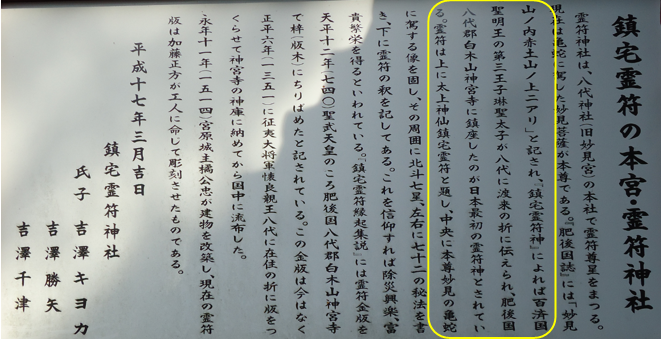 鎮宅霊符の本宮・霊符神社
霊符神社は、八代神社(旧妙見宮)の本社で、霊符尊星をまつる。
現在は亀蛇に駕した妙見菩薩が本尊である。『肥後国誌』には「妙見
山ノ内赤土山ノ上ニアリ」と記され、『鎮宅霊符神』によれば百済国
聖明王の第三王子琳聖太子が八代に渡来の折に伝えられ、肥後国
八代郡白木山神宮寺に鎮座したのが日本最初の霊符神とされてい
る。霊符は上に太上神仙鎮宅霊符と題し、中央に本尊妙見の亀蛇
に駕する像を図し、その周囲に北斗七星、左右に七十二の秘法を書
き、下に霊符の釈を記してある。これを信仰すれば除災興楽、富
貴繁栄を得るといわれている。『鎮宅霊符縁起集説』には霊符金版を
天平十二年(七四〇)聖武天皇のころ肥後国八代郡白木山神宮寺
で梓(版木)にちりばめたと記されている。この金版は今はなく
正平六年(一三五一)に征夷大将軍懐良親王八代に在住の折に版をつ
くらせて神宮寺の神庫に納めてから国中に流布した。
永年十一年(一五一四)宮原城主橘公忠が建物を改築し、現在の霊符
版は加藤正方が工人に命じて彫刻させたものである。
平成十七年三月吉日
鎮宅霊符神社
氏子 吉澤キヨカ
吉澤勝矢
吉澤千津